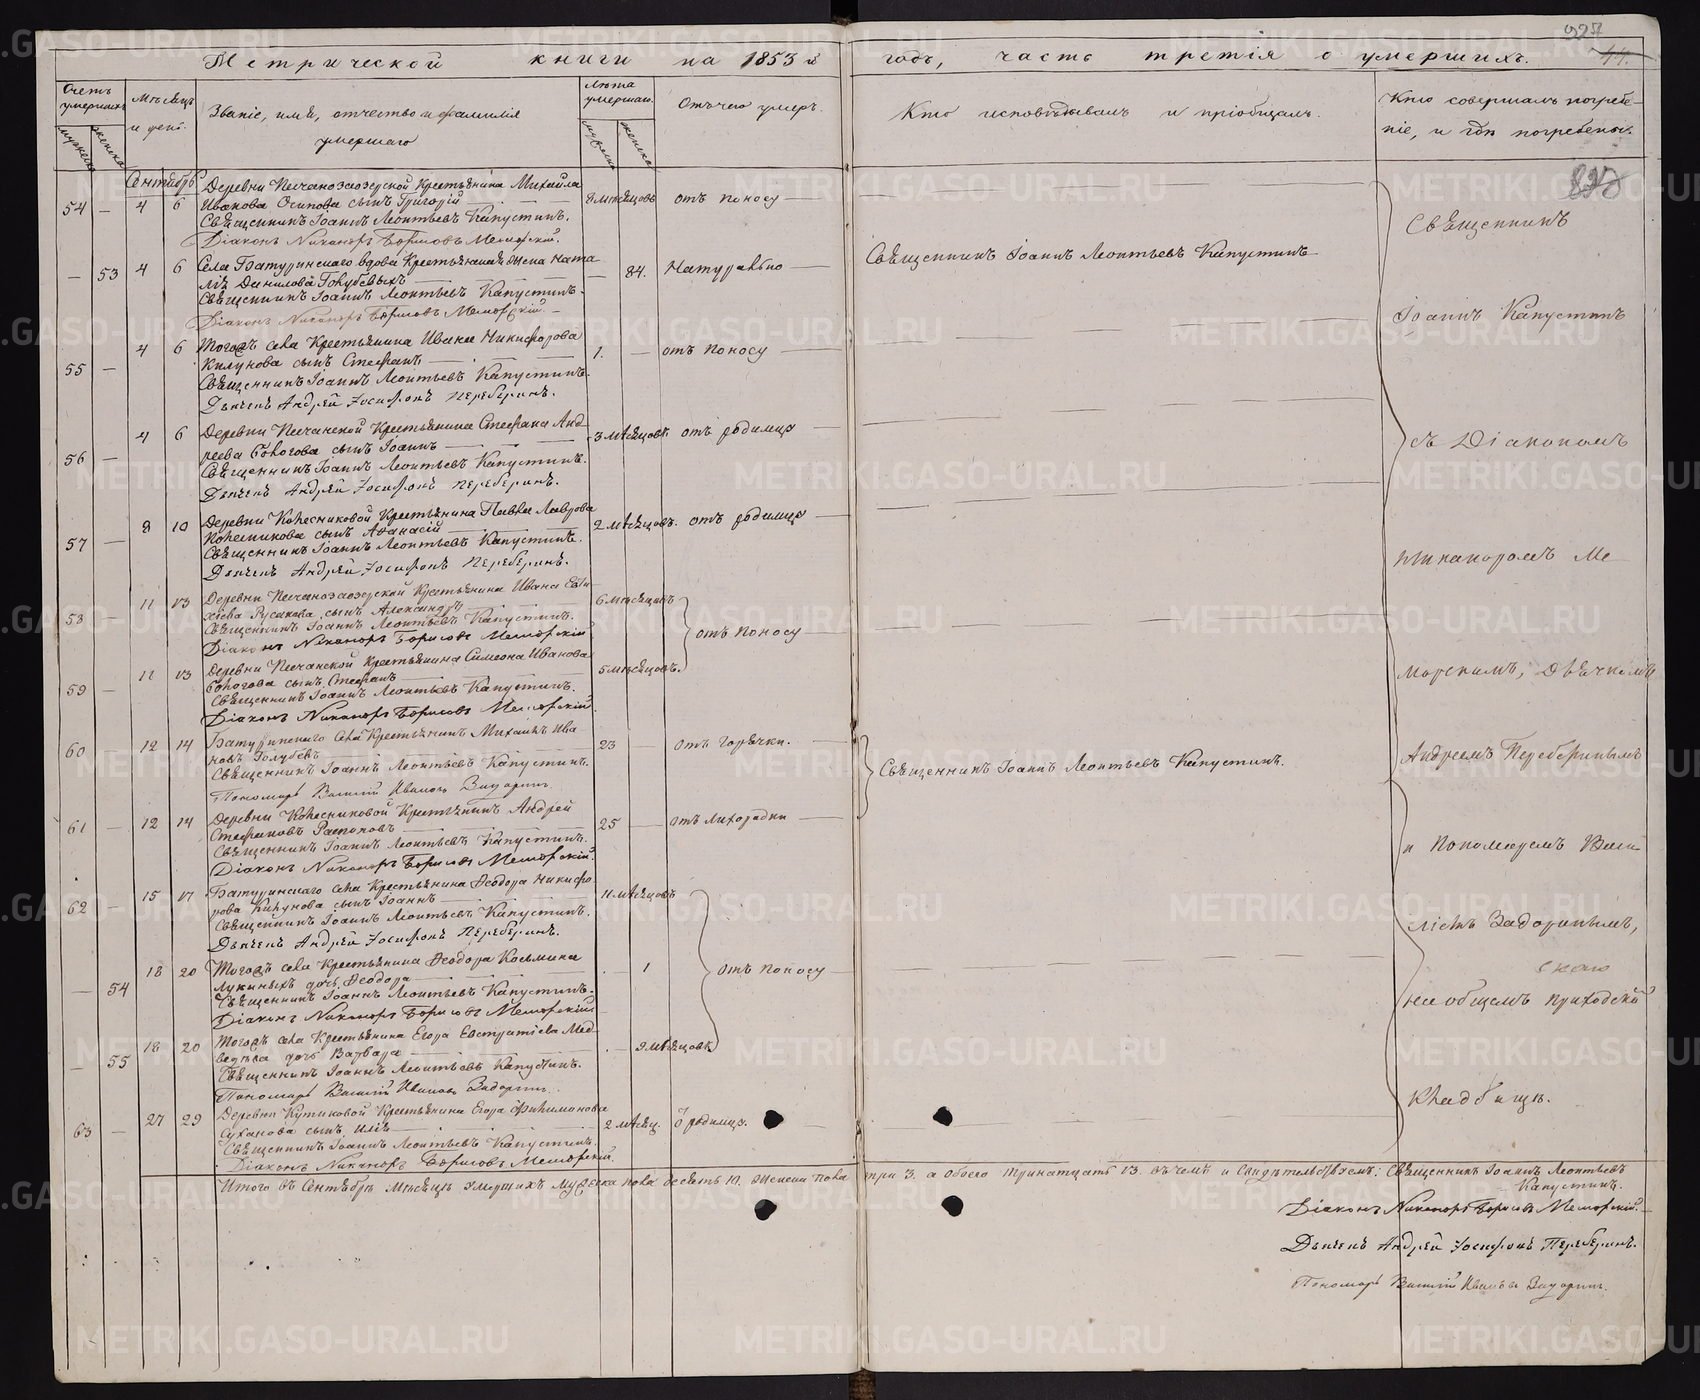 927
44.
Метрической книги на 1853 й годъ, часть третія о умершихъ.
Счетъ умершихъ
мужеска
женска
Мѣсяцъ и день.
Званіе, имя, отчество и фамилія умершаго
Лѣта умершаго.
мужеска
женска
Отъ чего умеръ.
Кто исповѣдывалъ и пріобщалъ.
Кто совершалъ погребеніе, и гдѣ погребены.
Сентябрь
54 — 4 6 Деревни Песчаноозерской Крестьянина Михаила
Иванова Осипова сынъ Григорій 8 мѣсяцовъ отъ поносу
Священникъ Іоаннъ Леонтьевъ Капустинъ.
Діаконъ Никаноръ Борисовъ Меморскій.
— 53 4 6 Села Батуринскаго вдова Крестьянская жена Ната-
лія Данилова Голубевыхъ — 84. Натурально Священникъ Іоаннъ Леонтьевъ Капустинъ
Священникъ Іоаннъ Леонтьевъ Капустинъ.
Діаконъ Никаноръ Борисовъ Меморскій.
55 — 4 6 Тогожъ села Крестьянина Ивана Никифорова
Килунова сынъ Стефанъ 1. — отъ поносу
Священникъ Іоаннъ Леонтьевъ Капустинъ.
Дьячекъ Андрей Іосифовъ Переберинъ.
56 — 4 6 Деревни Песчанской Крестьянина Стефана Анд-
реева Боногова сынъ Іоаннъ 3 мѣсяцовъ отъ родимца
Священникъ Іоаннъ Леонтьевъ Капустинъ.
Дьячекъ Андрей Іосифовъ Переберинъ.
57 — 8 10 Деревни Колесниковой Крестьянина Павла Лаврова
сынъ Афанасій 2 мѣсяцовъ. отъ родимца
Священникъ Іоаннъ Леонтьевъ Капустинъ.
Дьячекъ Андрей Іосифовъ Переберинъ.
58 — 11 13 Деревни Песчаноозерской Крестьянина Ивана Евти-
хіева Русакова сынъ Александръ 6 мѣсяцовъ
Священникъ Іоаннъ Леонтьевъ Капустинъ.
Діаконъ Никаноръ Борисовъ Меморскій отъ поносу
59 — 11 13 Деревни Песчанской Крестьянина Симеона Иванова
Боногова сынъ Стефанъ 5 мѣсяцовъ.
Священникъ Іоаннъ Леонтьевъ Капустинъ.
Діаконъ Никаноръ Борисовъ Меморскій.
60 — 12 14 Батуринскаго села Крестьянинъ Михаилъ Ива-
новъ Голубевъ 23 — отъ горячки.
Священникъ Іоаннъ Леонтьевъ Капустинъ. Священникъ Іоаннъ Леонтьевъ Капустинъ.
Пономарь Василій Ивановъ Задоринъ
61 — 12 14 Деревни Колесниковой Крестьянинъ Андрей
Стефановъ 25 — отъ лихорадки
Священникъ Іоаннъ Леонтьевъ Капустинъ.
Діаконъ Никаноръ Борисовъ Меморскій.
62 — 15 17 Батуринскаго села Крестьянина Ѳеодора Никифо-
рова Килунова сынъ Іоаннъ 11 мѣсяцовъ
Священникъ Іоаннъ Леонтьевъ Капустинъ.
Дьячекъ Андрей Іосифовъ Переберинъ.
— 54 18 20 Тогожъ села Крестьянина Ѳеодора Косьмина
Лукиныхъ дочь Ѳеодора 1 отъ поносу
Священникъ Іоаннъ Леонтьевъ Капустинъ.
Діаконъ Никаноръ Борисовъ Меморскій.
— 55 18 20 Тогожъ села Крестьянина Егора Евстратіева Мед-
ведева дочь Варвара — 9 мѣсяцовъ
Священникъ Іоаннъ Леонтьевъ Капустинъ.
Пономарь Василій Ивановъ Задоринъ.
63 — 27 29 Деревни Кутиковой Крестьянина Егора Филимонова
Суханова сынъ Илія 2 мѣсяц. родимца.
Священникъ Іоаннъ Леонтьевъ Капустинъ.
Діаконъ Никаноръ Борисовъ Меморскій.
Священникъ
Іоаннъ Капустинъ
съ Діакономъ
Никаноромъ Ме-
морскимъ, Дьячкомъ
Андреемъ Переберинымъ
и Пономаремъ Васи-
ліемъ Задоринымъ,
на общемъ приходскомъ
кладбищѣ.
Итого въ Сентябрѣ мѣсяцѣ умершихъ мужеска пола десять 10. женска пола три 3. а обоего тринатцать 13. въ чемъ и свидѣтельствуемъ: Священникъ Іоаннъ Леонтьевъ
Капустинъ.
Діаконъ Никаноръ Борисовъ Меморскій.
Дьячекъ Андрей Іосифовъ Переберинъ.
Пономарь Василій Ивановъ Задоринъ.
METRIKI.GASO-URAL.RU